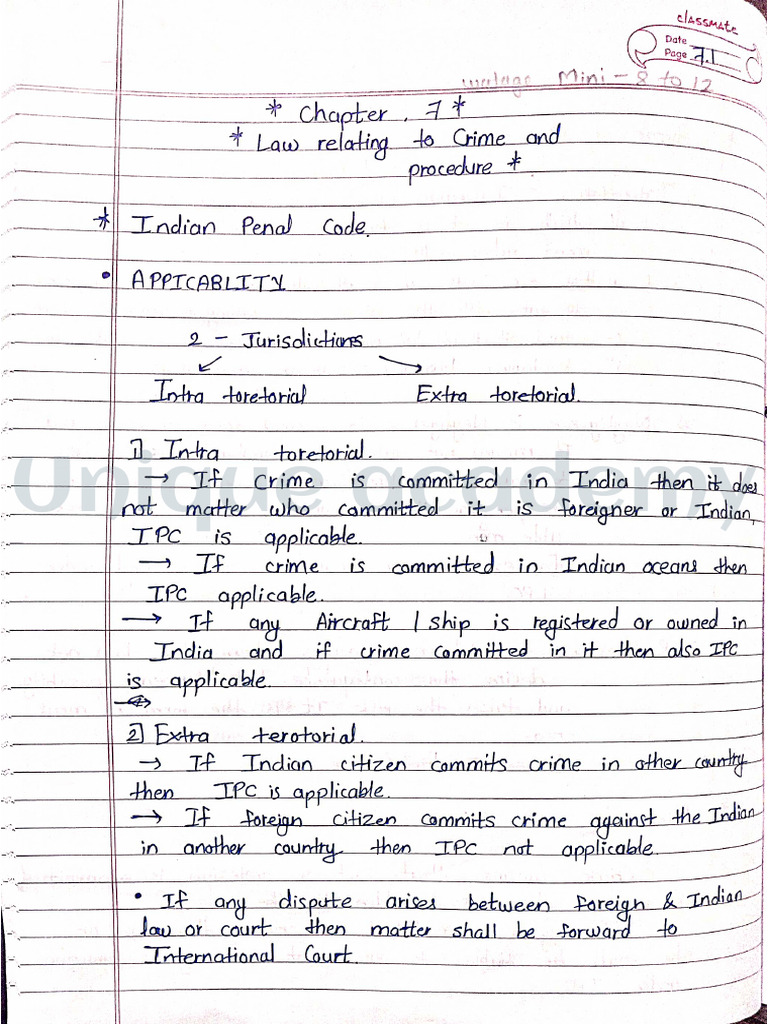 classmate
Date
Page 7.1
Mini - 8 to 12
* Chapter . 7 *
* Law relating to Crime and
procedure *
* Indian Penal Code.
• APPICABLITY
2 - Jurisdictions
Intra toretorial Extra toretorial.
1] Intra toretorial.
→ If Crime is committed in India then it does
not matter who committed it is foreigner or Indian,
IPC is applicable.
→ If crime is committed in Indian oceans then
IPC applicable.
→ If any Aircraft / ship is registered or owned in
India and if crime committed in it then also IPC
is applicable.
2] Extra terotorial.
→ If Indian citizen commits crime in other country
then IPC is applicable.
→ If foreign citizen commits crime against the Indian
in another country then IPC not applicable.
• If any dispute arises between foreign & Indian
law or court then matter shall be forward to
International Court.
Unique academy